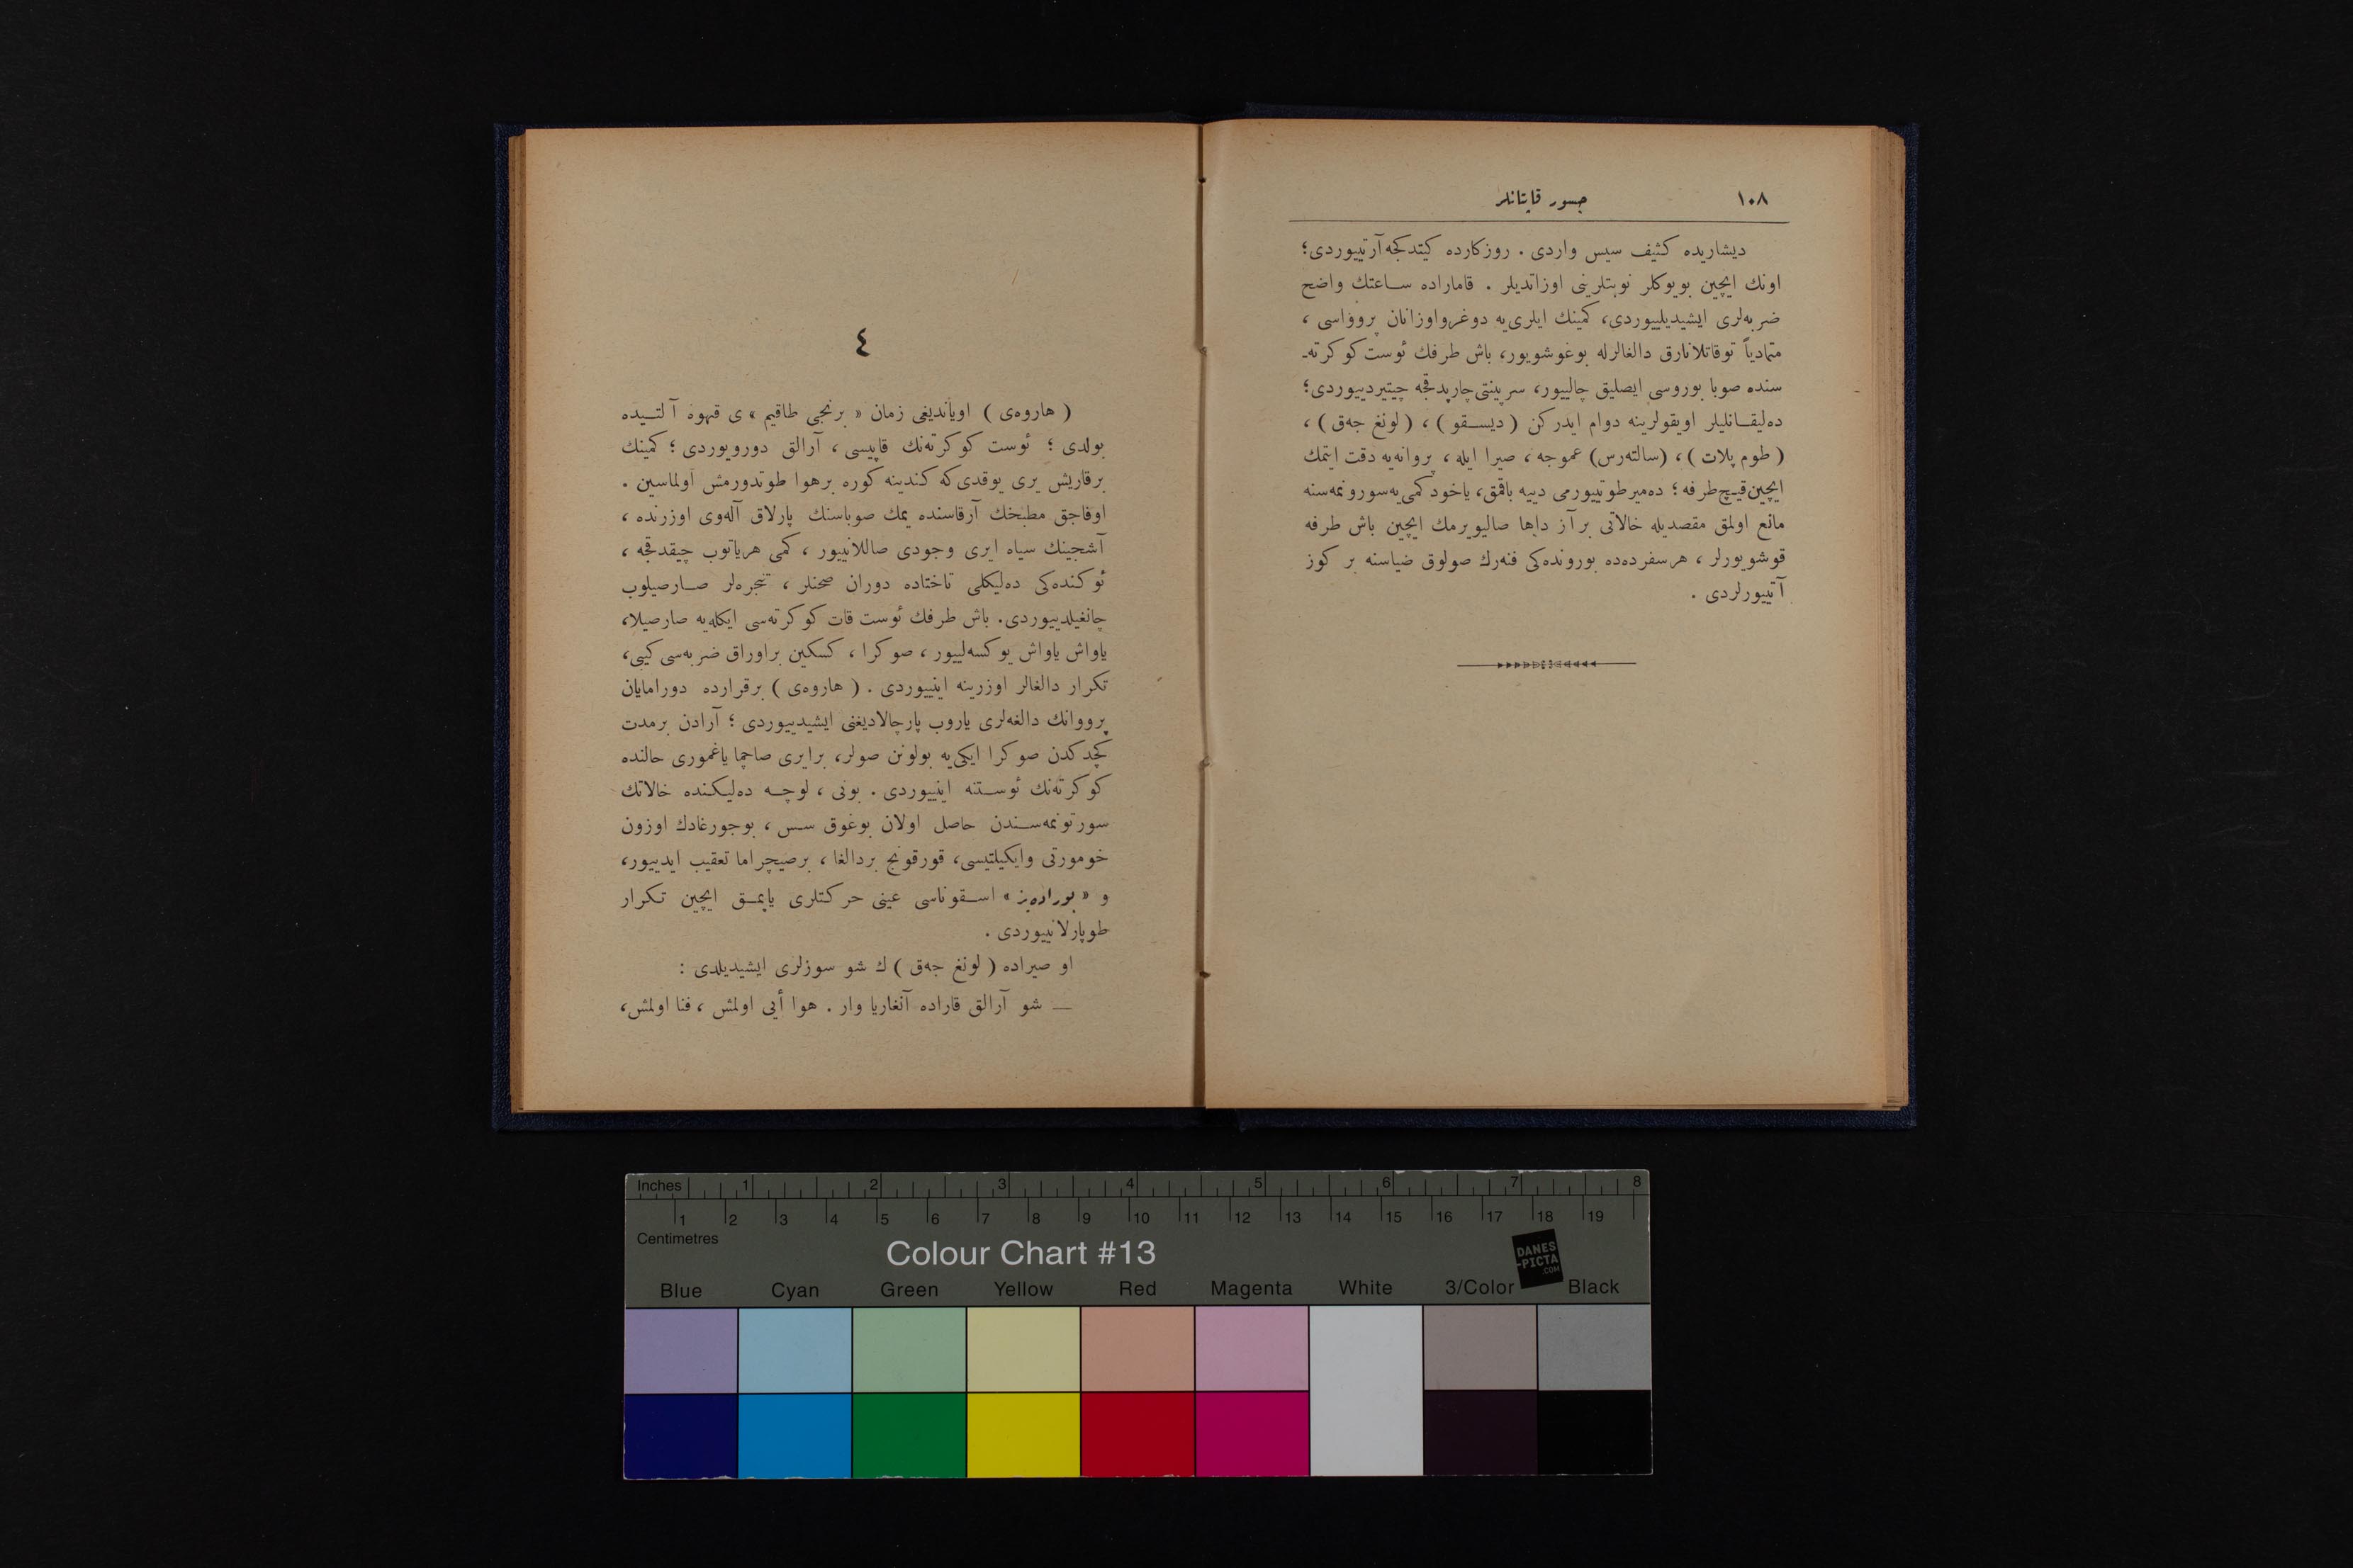 ١٠٨
جسور قاپتانلر
ديشاريده كثيف سيس واردى . روزكارده كيتدكجه آرتييوردى؛
اونك ايچين بويوكلر نوبتلرينى اوزاتديلر . قاماراده ساعتك واضح
ضربه‌لرى ايشيديلييوردى، كمينك ايلرى‌يه دوغرواوزانان پروواسى ،
متمادياً توقاتلانارق دالغالرله بوغوشويور، باش طرفك ئوست كوكرته‌ـ
سنده صوبا بوروسى ايصليق چالييور، سرپينتى چارپدقجه چيتيردييوردى؛
ده‌ليقانليلر اويقولرينه دوام ايدركن ( ديسقو ) ، ( لونغ جه‌ق ) ،
( طوم پلات ) ، (سالته‌رس) عموجه ، صيرا ايله ، پروانه‌يه دقت ايتمك
ايچين قيچ طرفه ؛ ده‌مير طوتييورمى دييه باقمق، ياخود كمى‌يه سورونمه‌سنه
مانع اولمق مقصديله خالاتى بر آز داها صاليويرمك ايچين باش طرفه
قوشويورلر ، هر سفرده‌ده بورونده‌كى فنه‌رك صولوق ضياسنه بر كوز
آتييورلردى .
٤
( هاروه‌ى ) اوياندیغى زمان « برنجى طاقيم » ى قهوه آلتيده
بولدى ؛ ئوست كوكرته‌نك قاپيسى ، آرالق دورويوردى ؛ كمينك
برقاريش يرى يوقدى كه كندينه كوره برهوا طوتدورمش اولماسين .
اوفاجق مطبخك آرقاسنده يمك صوباسنك پارلاق آله‌وى اوزرنده ،
آشجينك سياه ايرى وجودى صاللانييور ، كمى هرياتوب چيقدقجه ،
ئوكنده‌كى ده‌ليكلى تاختاده دوران صحنلر ، تنجره‌لر صارصيلوب
چانغيلدييوردى. باش طرفك ئوست قات كوكرته‌سى ايكله‌يه صارصيلا،
ياواش ياواش يوكسه‌لييور ، صوكرا ، كسكين براوراق ضربه‌سى كيبى،
تكرار دالغالر اوزرينه اينييوردى . ( هاروه‌ى ) برقرارده دورامايان
پرووانك دالغه‌لرى ياروب پارچالاديغنى ايشيدييوردى ؛ آرادن برمدت
كچدكدن صوكرا ايكى‌يه بولونن صولر، برايرى صاچما ياغمورى حالنده
كوكرته‌نك ئوستنه اينييوردى . بونى ، لوچه ده‌ليكنده خالاتك
سورتونمه‌سندن حاصل اولان بوغوق سس ، بوجورغادك اوزون
خومورتى وايكيلتيسى، قورقونج بردالغا ، برصيچراما تعقيب ايدييور،
و « بوراده‌يز » اسقوناسى عينى حركتلرى ياپمق ايچين تكرار
طوپارلانييوردى .
او صيراده ( لونغ جه‌ق ) ك شو سوزلرى ايشيديلدى :
— شو آرالق قاراده آنغاريا وار . هوا أيى اولمش ، فنا اولمش،
Inches 1 2 3 4 5 6 7 8
1 2 3 4 5 6 7 8 9 10 11 12 13 14 15 16 17 18 19
Centimetres
Colour Chart #13
DANES
-PICTA
.COM
Blue Cyan Green Yellow Red Magenta White 3/Color Black